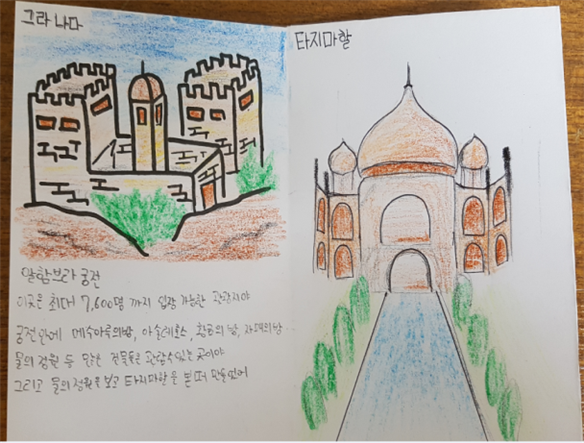 그라나다
타지마할
알함브라 궁전
이곳은 최대 7,600명 까지 입장 가능한 관광지야
궁전안에 메수아르의방, 아술레호스, 황금의 방, 자매의방
물의 정원 등 많은 건축물을 관람할수있는 곳이야
그리고 물의정원을보고 타지마할을 본떠 만들었어